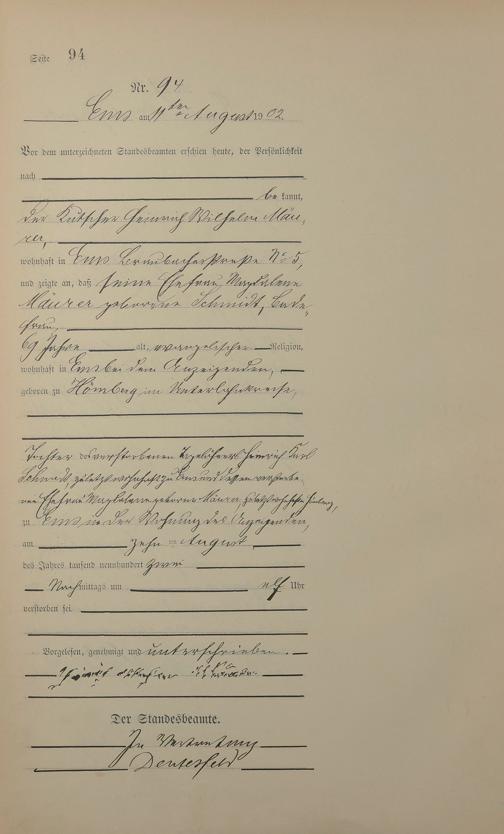 Seite 94
Nr. 94
Ems am 11ten August 1902
Vor dem unterzeichneten Standesbeamten erschien heute, der Persönlichkeit
nach
be kannt,
der Kutscher Heinrich Wilhelm Mäu-
rer,
wohnhaft in Ems Braubacherstraße No 5,
und zeigte an, daß seine Ehefrau Magdalene
Mäurer geborene Schmidt, Bade-
frau,
69 Jahre alt, evangelischer Religion,
wohnhaft in Ems bei dem Anzeigenden,
geboren zu Hömberg im Unterlahnkreise,
Tochter des verstorbenen Tagelöhners Heinrich Karl
Schmidt, zuletzt wohnhaft zu Ems und dessen verstorbe-
nen Ehefrau Magdalene geborene Mäurer, zuletzt wohnhaft
zu Ems in der Wohnung des Anzeigenden,
am zehn ten August
des Jahres tausend neunhundert zwei
Nachmittags um elf Uhr
verstorben sei.
Vorgelesen, genehmigt und unterschrieben.
Der Standesbeamte.
In Vertretung